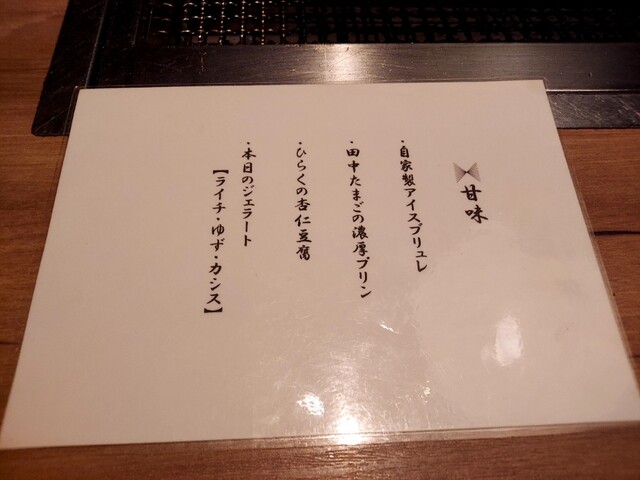 甘味
・自家製アイスブリュレ
・田中たまごの濃厚プリン
・ひらくの杏仁豆腐
・本日のジェラート
【ライチ・ゆず・カシス】